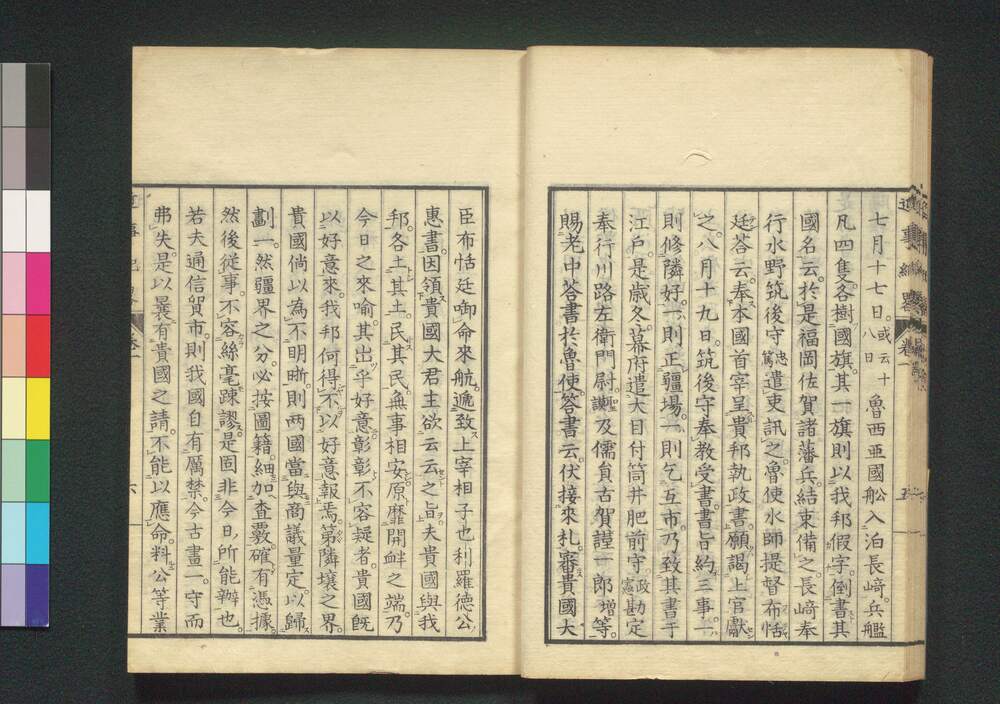 七月十七日。或云十八日魯西亜國舩入泊長﨑。兵艦
凡四隻。各樹國旗。其一旗則以我邦假字。倒書其
國名云。於是福岡佐賀諸藩兵。結束備之。長﨑奉
行水野筑後守忠篤遣吏訊之。魯使水師提督布恬
廷荅云。奉本國首宰呈貴邦執政書。願謁上官獻
之。八月十九日。筑後守奉教受書。書旨約三事。一
則修隣好。一則正疆場。一則乞互市。乃致其書于
江戸。是歳冬。幕府遣大目付筒井肥前守政憲勘定
奉行川路左衛門尉聖謨及儒員古賀謹一郎増等。
賜老中荅書於魯使。荅書云。伏接來札。審貴國大
臣布恬廷啣命來航。遞致上宰相子也利羅德公
惠書。因領貴國大君主欲云云之旨。夫貴國與我
邦。各土其土。民其民。無事相安。原靡開衅之端。乃
今日之來喩。其出乎好意。彰彰不容疑者。貴國既
以好意來。我邦何得不以好意報焉。第隣壤之界。
貴國倘以為不明晰。則两國當與商議量定。以歸
劃一。然疆界之分。必按圖籍。細加查覈。確有憑據。
然後從事。不容絲毫踈謬。是固非今日所能辦也。
若夫通信貿市。則我國自有厲禁。今古畫一。守而
弗失。是以曩有貴國之請。不能以應命。料公等業